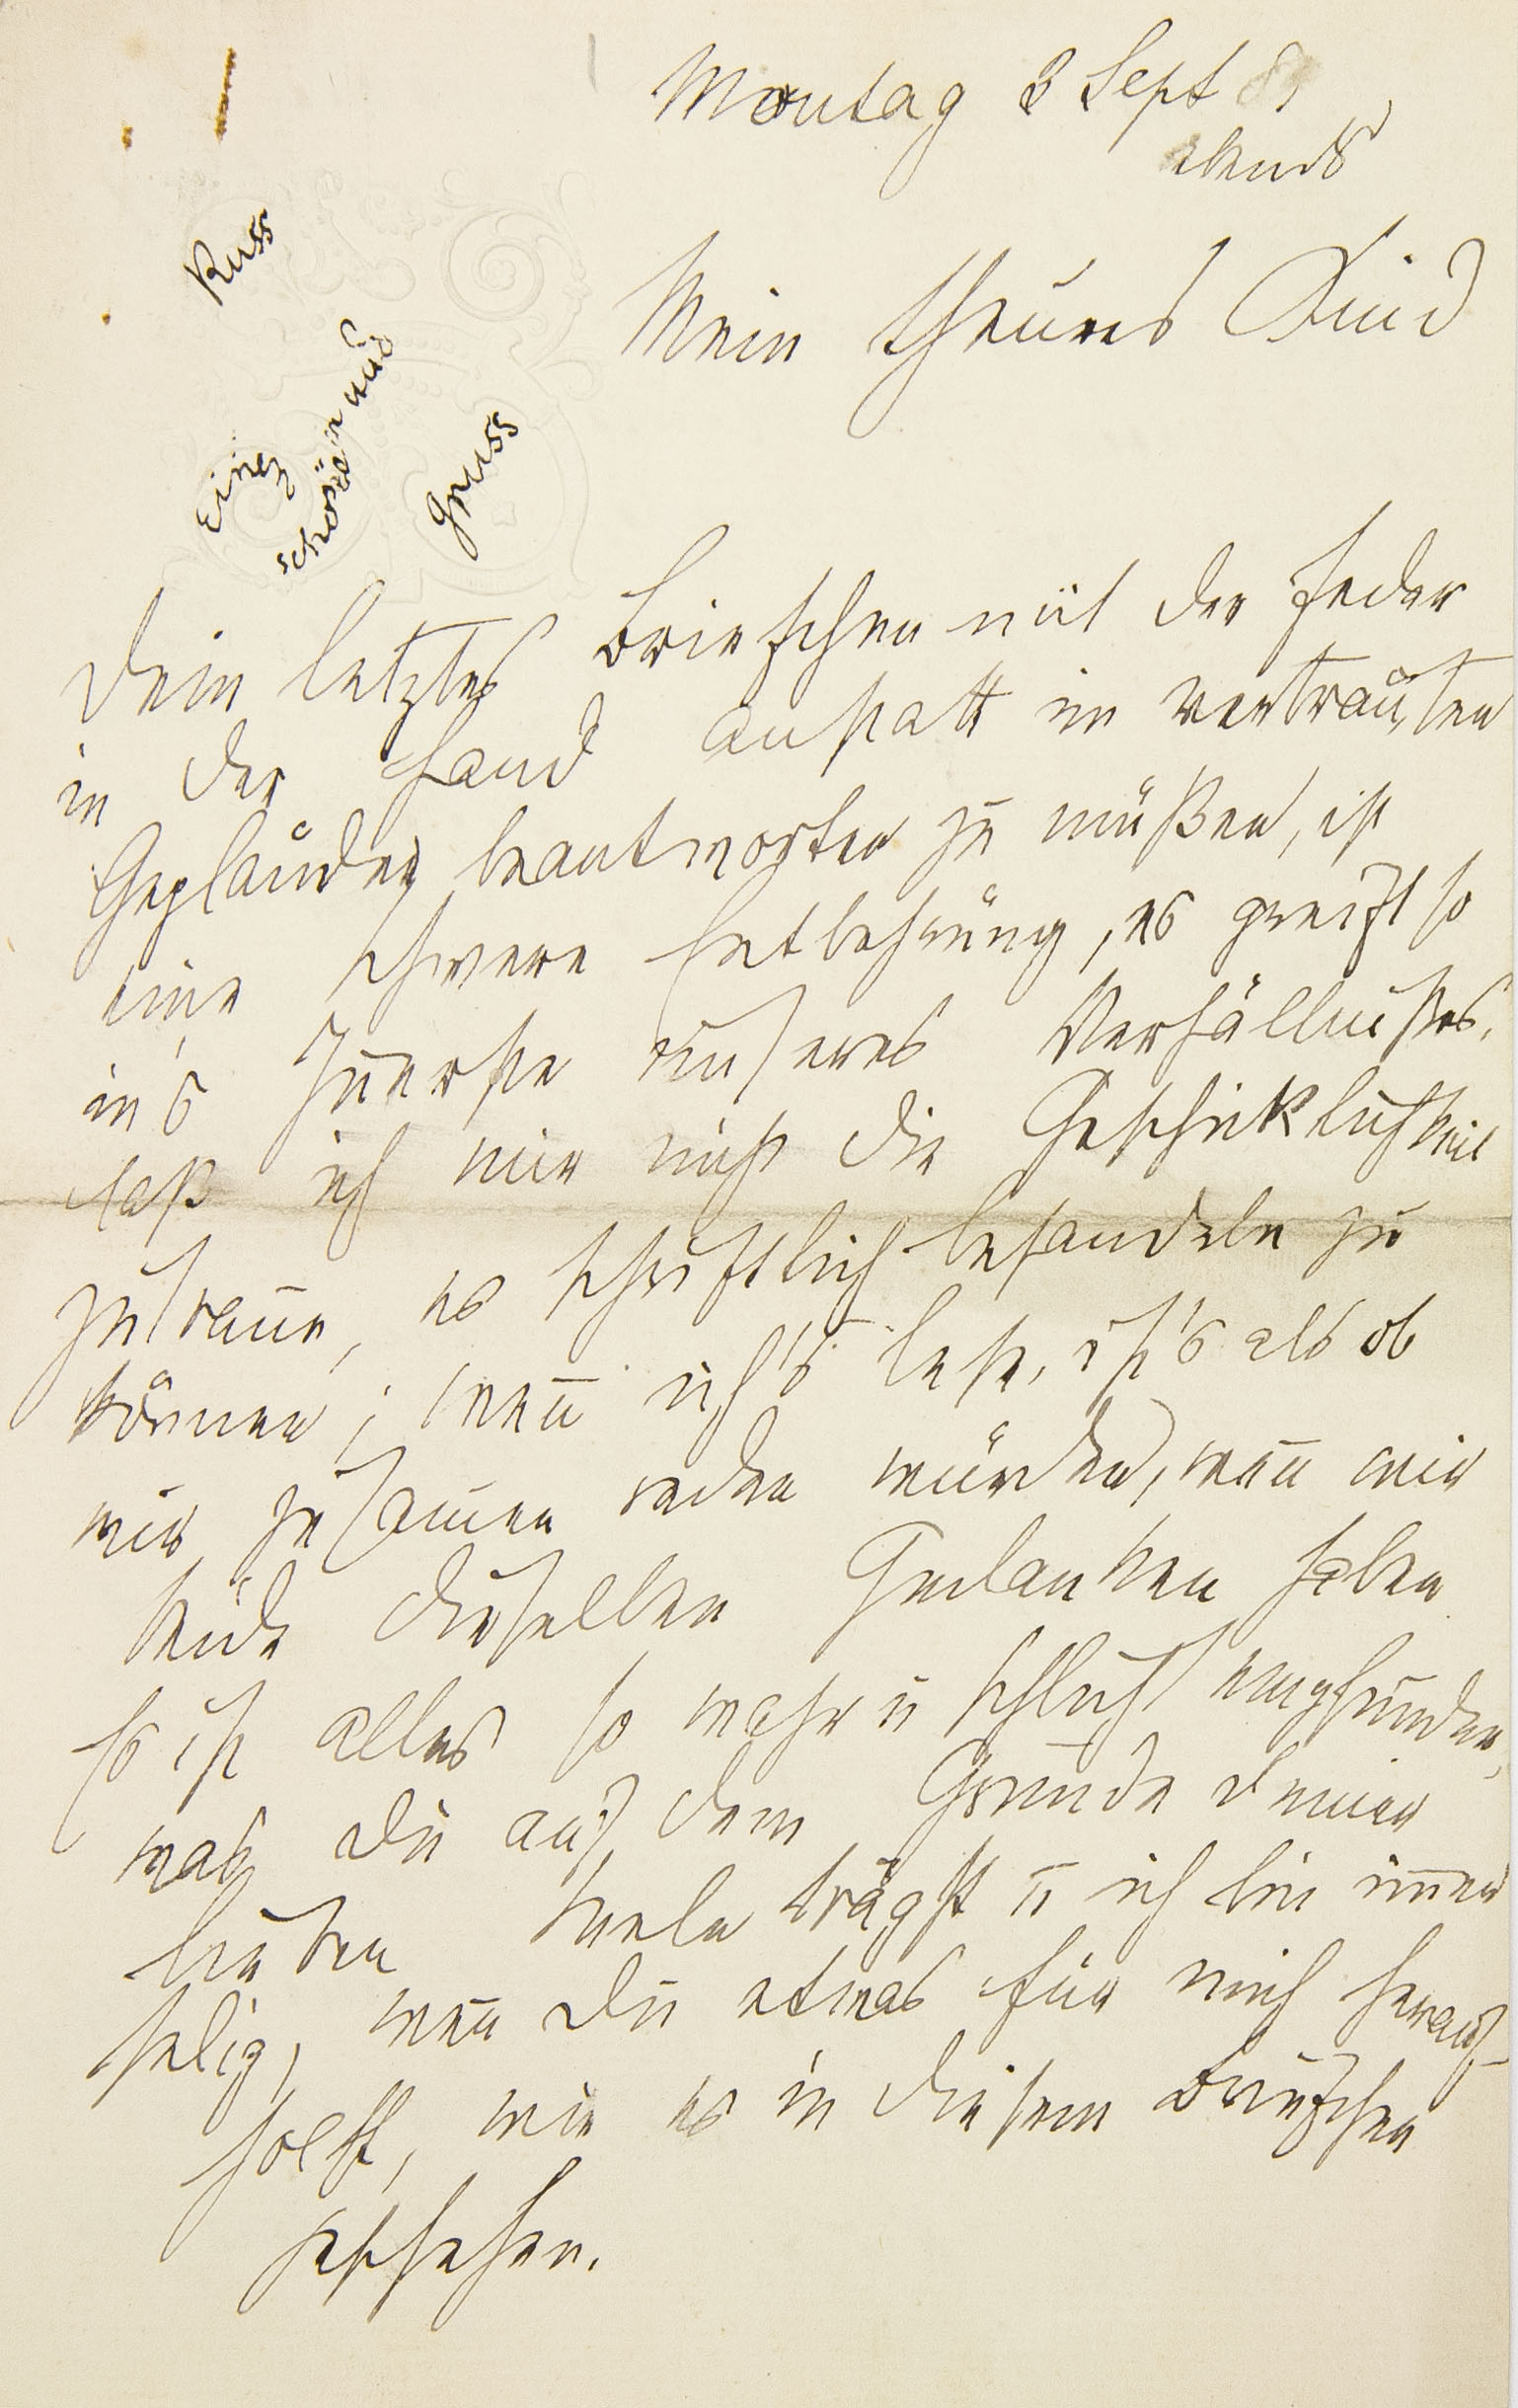 Montag 3 Sept
abends
Einen
schönen und
Gruss
Kuss
Mein theures Kind
Dein letztes Briefchen mit der Feder
in der Hand anstatt im vertrauten
Geplauder beantworten zu müßen, ist
eine schwere Entbehrung, es greift so
in's Innerste unseres Verhältnißes,
daß ich mir nicht die Geschicklichkeit
zutraue, es schriftlich behandeln zu
können; wen̄ ich's lese, ist's als ob
wir zusam̄en reden würden, wen̄ wir
beide dieselben Gedanken haben
Es ist alles so wahr u schlicht empfunden,
was Du auf dem Grunde Deiner
lieben Seele trägst u ich bin im̄er
selig, wen̄ Du etwas für mich herauf-
holst, wie es in diesem Briefchen
geschehen.